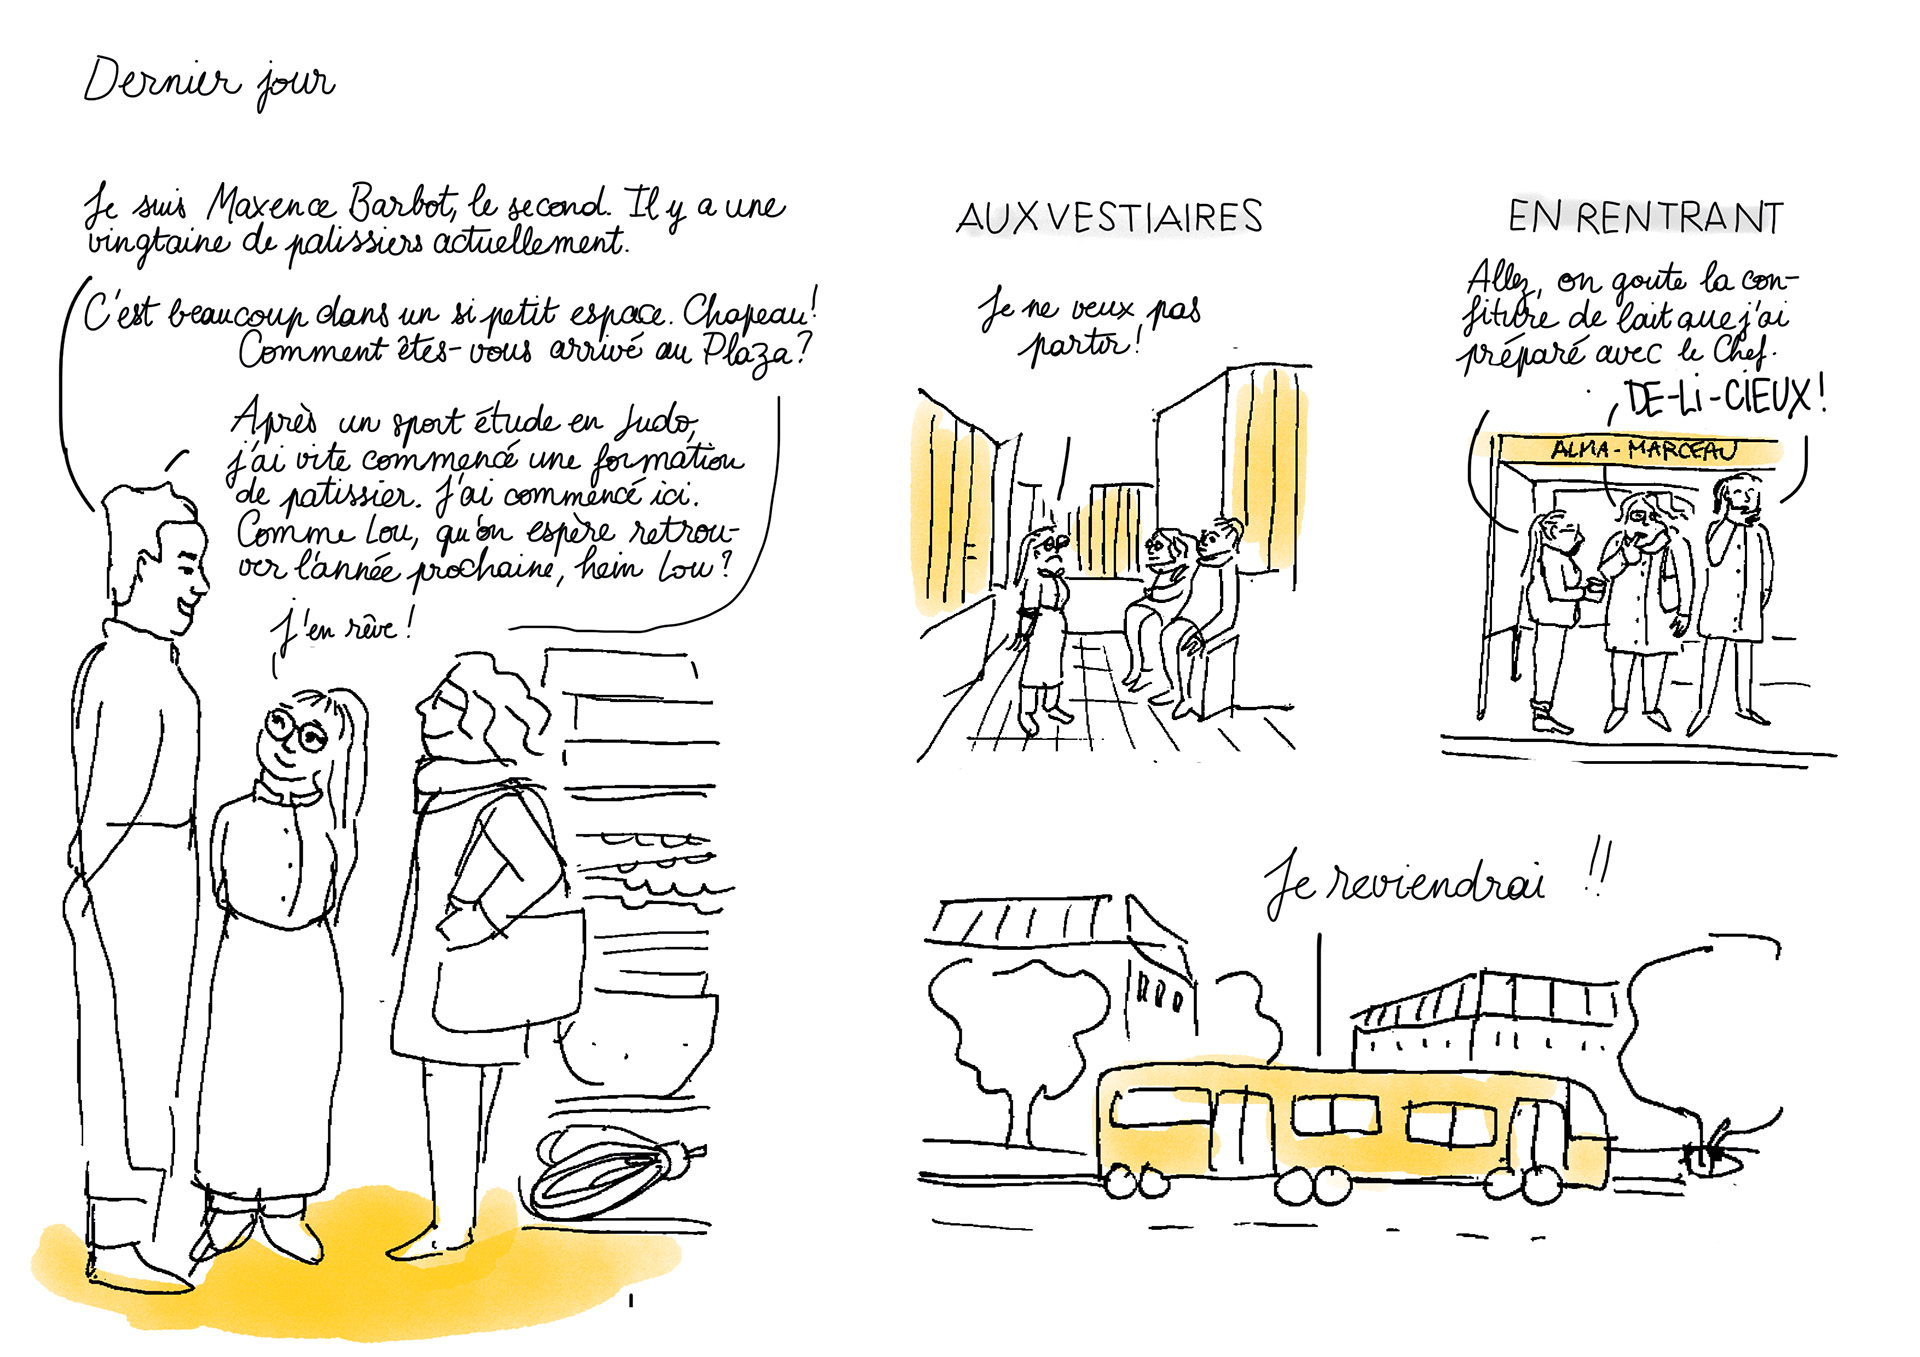 Dernier jour
Je suis Maxence Barbot, le second. Il y a une
vingtaine de patissiers actuellement.
C'est beaucoup dans un si petit espace. Chapeau!
Comment êtes-vous arrivé au Plaza?
Après un sport étude en Judo,
j'ai vite commencé une formation
de patissier. J'ai commencé ici.
Comme Lou, qu'on espère retrou-
ver l'année prochaine, hein Lou?
J'en rêve!
AUX VESTIAIRES
Je ne veux pas
partir!
EN RENTRANT
Allez, on goute la con-
fiture de lait que j'ai
préparé avec le Chef.
DE-LI-CIEUX!
ALMA-MARCEAU
Je reviendrai !!